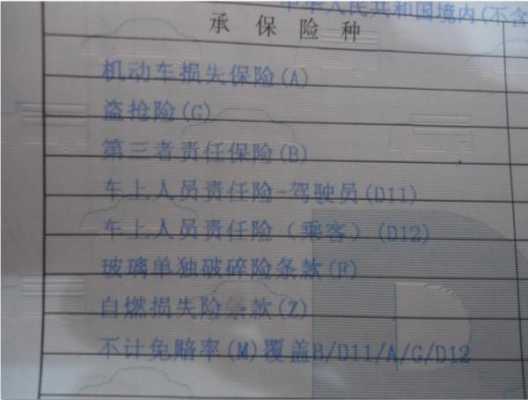 中华人民共和国境内(不含
承保险种
机动车损失保险(A)
盗抢险(G)
第三者责任保险(B)
车上人员责任险-驾驶员(D11)
车上人员责任险(乘客)(D12)
玻璃单独破碎险条款(F)
自燃损失险条款(Z)
不计免赔率(M)覆盖B/D11/A/G/D12